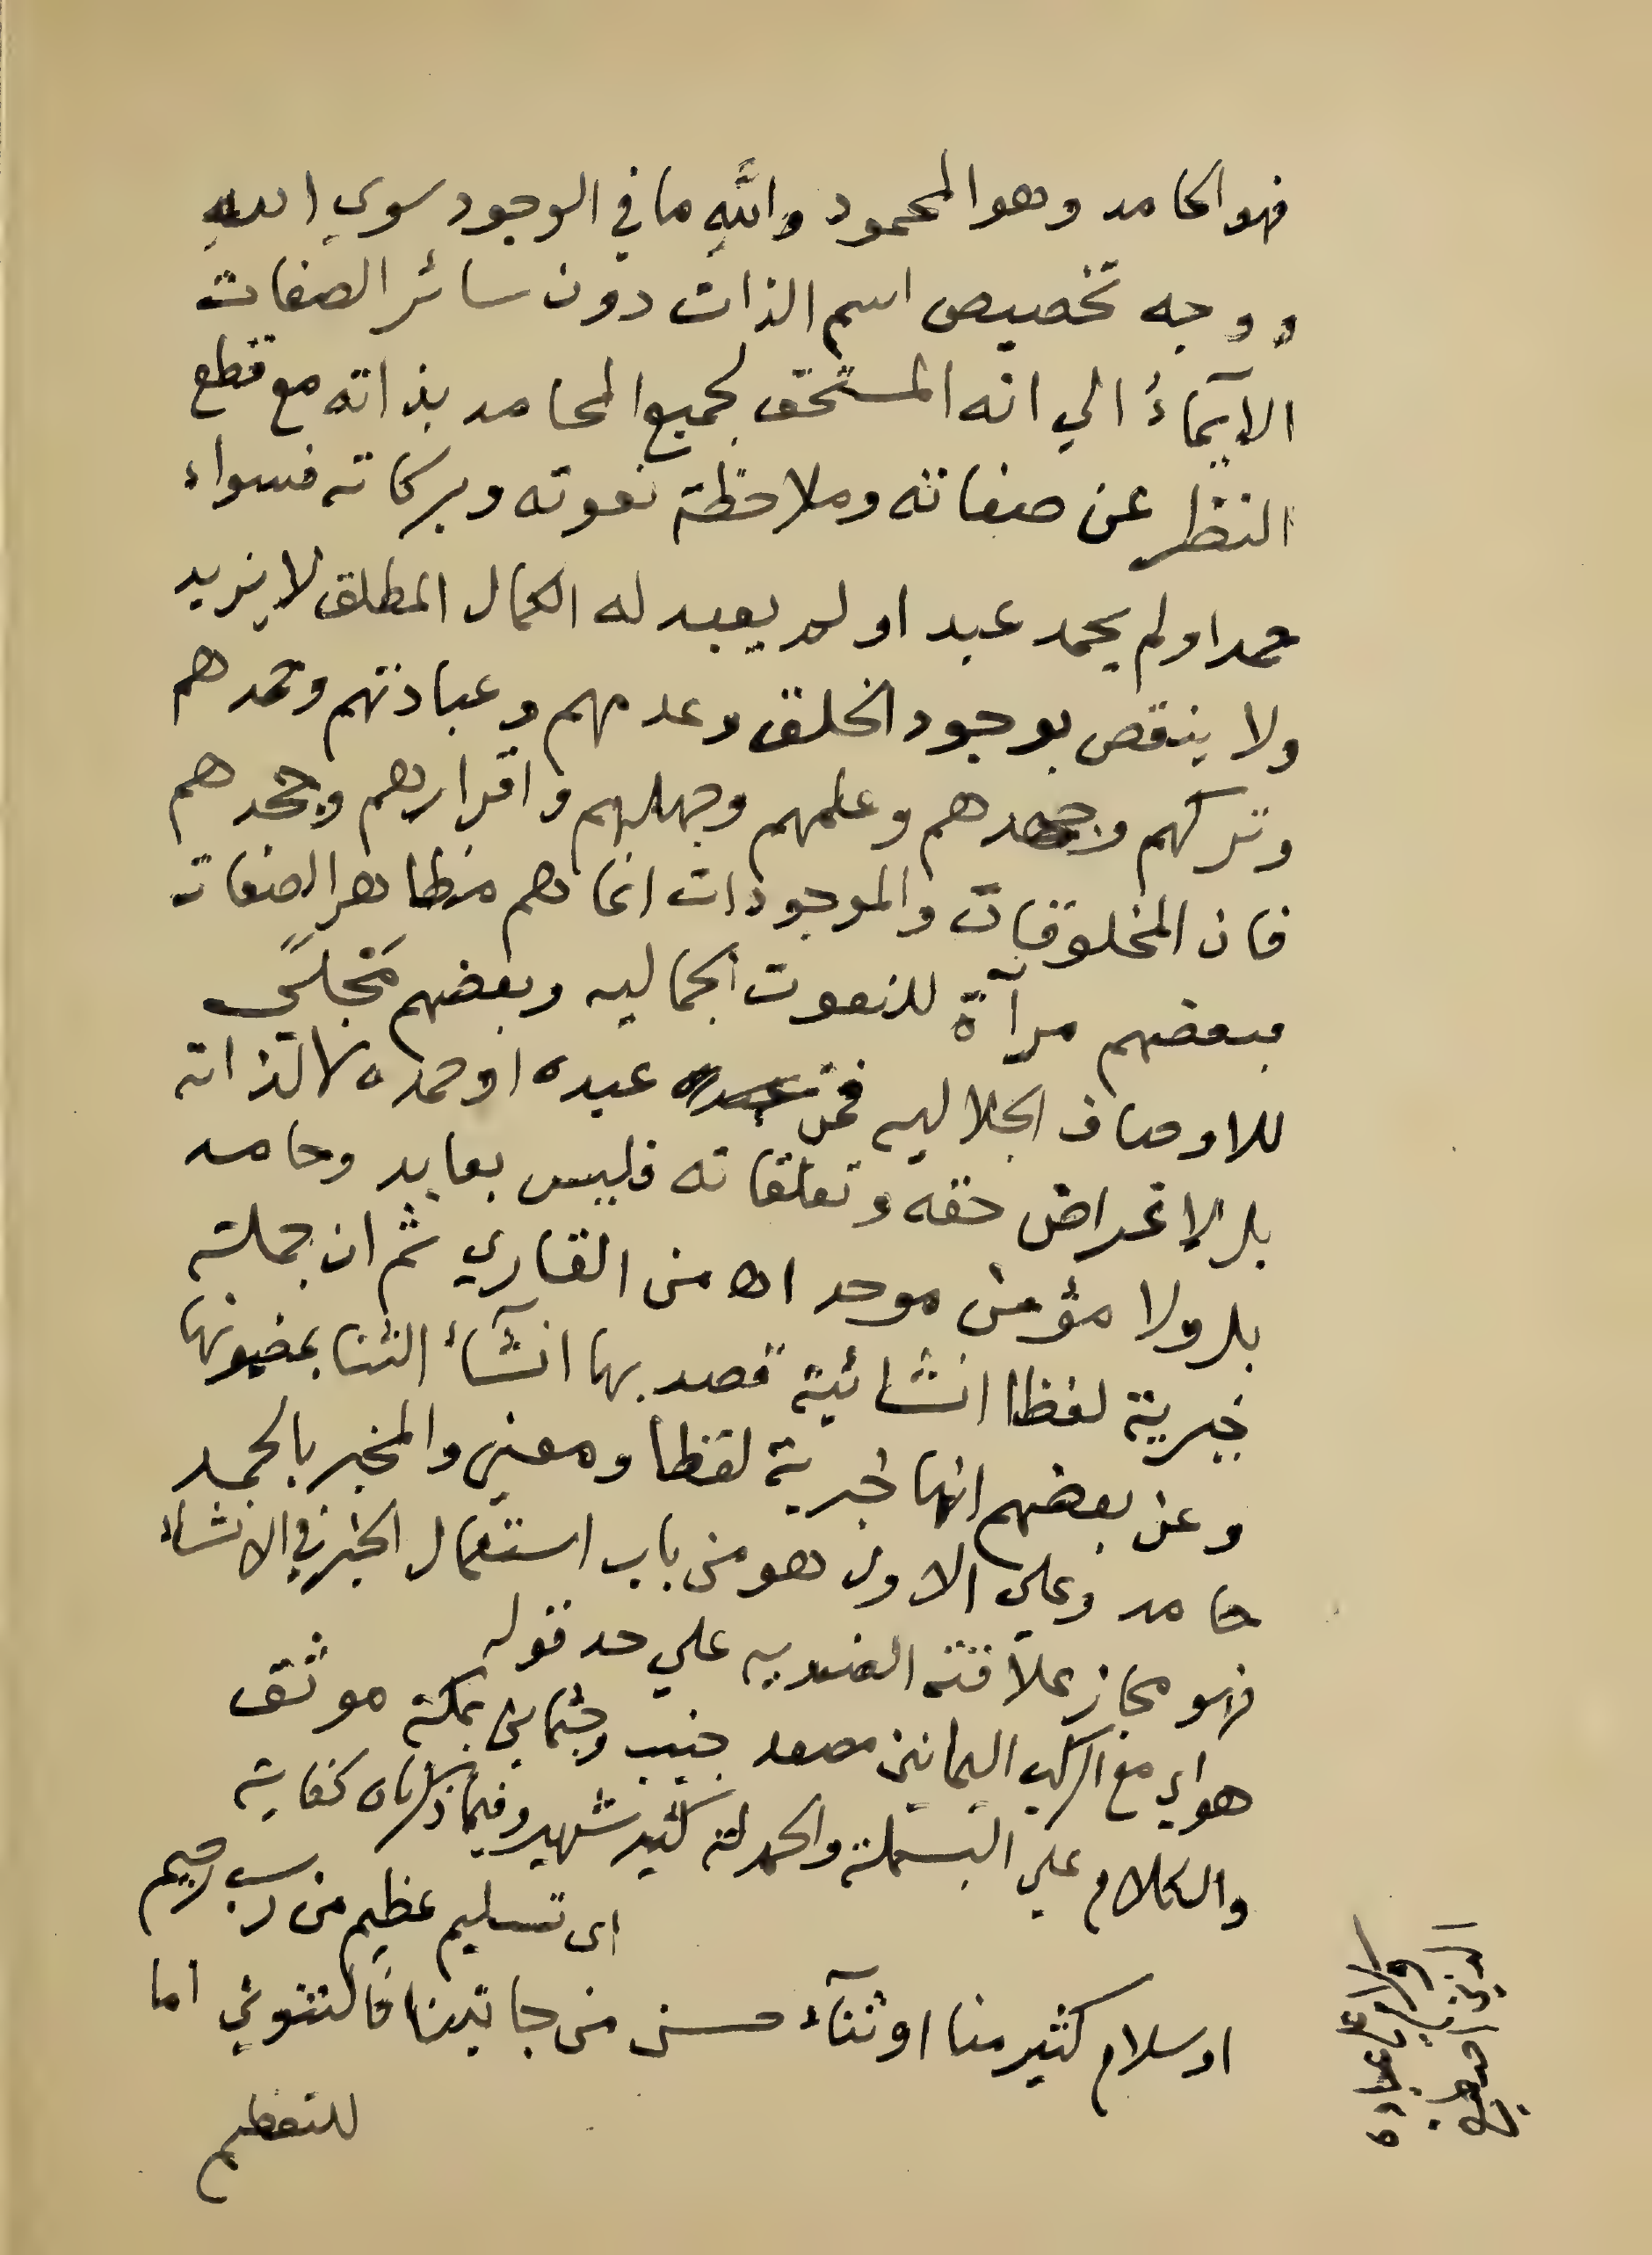 فهو الحامد وهو المحمود والله ما في الوجود سوي الله
ووجه تخصيص اسم الذات دون سائر الصفات
الايمآءُ الي انه المستحق لجميع المحامد بذاته مع قطع
النظر عن صفاته وملاحظة نعوته وبركاته فسواء
حمد اولم يحمد عبد او لم يعبد له الكمال المطلق لا يزيد
ولا ينقص بوجود الخلق وعدمهم وعبادتهم وحمدهم
وتركهم وعلمهم وجهلهم واقرارهم وجحدهم
فان المخلوقات والموجودات انما هم مظاهر الصفات
فبعضهم مرآة للنعوت الجماليه وبعضهم مَجلًي
للاوصاف الجلاليه فمن عبده او حمده لا لذاته
بل لاغراض حقه وتعلقاته فليس بعابد وحامد
بل ولا مؤمن موحد اه من القاري ثم ان جملته
خبرية لفظا انشائية قصد بها انشآء الثنا بمضمونها
وعن بعضهم انها خبرية لفظا ومعني والمخبر بالحمد
حامد وعلي الاول هو من باب استعمال الخبر في الانشاء
فهو مجاز علاقته الضديه علي حد قوله
هواي مع الركب اليمانين مصعد جنيب وجثماني بمكة موثق
والكلام علي البسملة والحمدلة كثير شهير وفيما ذكرناه كفاية
اى تسليم عظيم من رب رحيم
او سلام كثير منا او ثنآء حسن من جانبنا فالتنوين اما
للتعظيم
وسلام علي عباده
الذين اصطفي